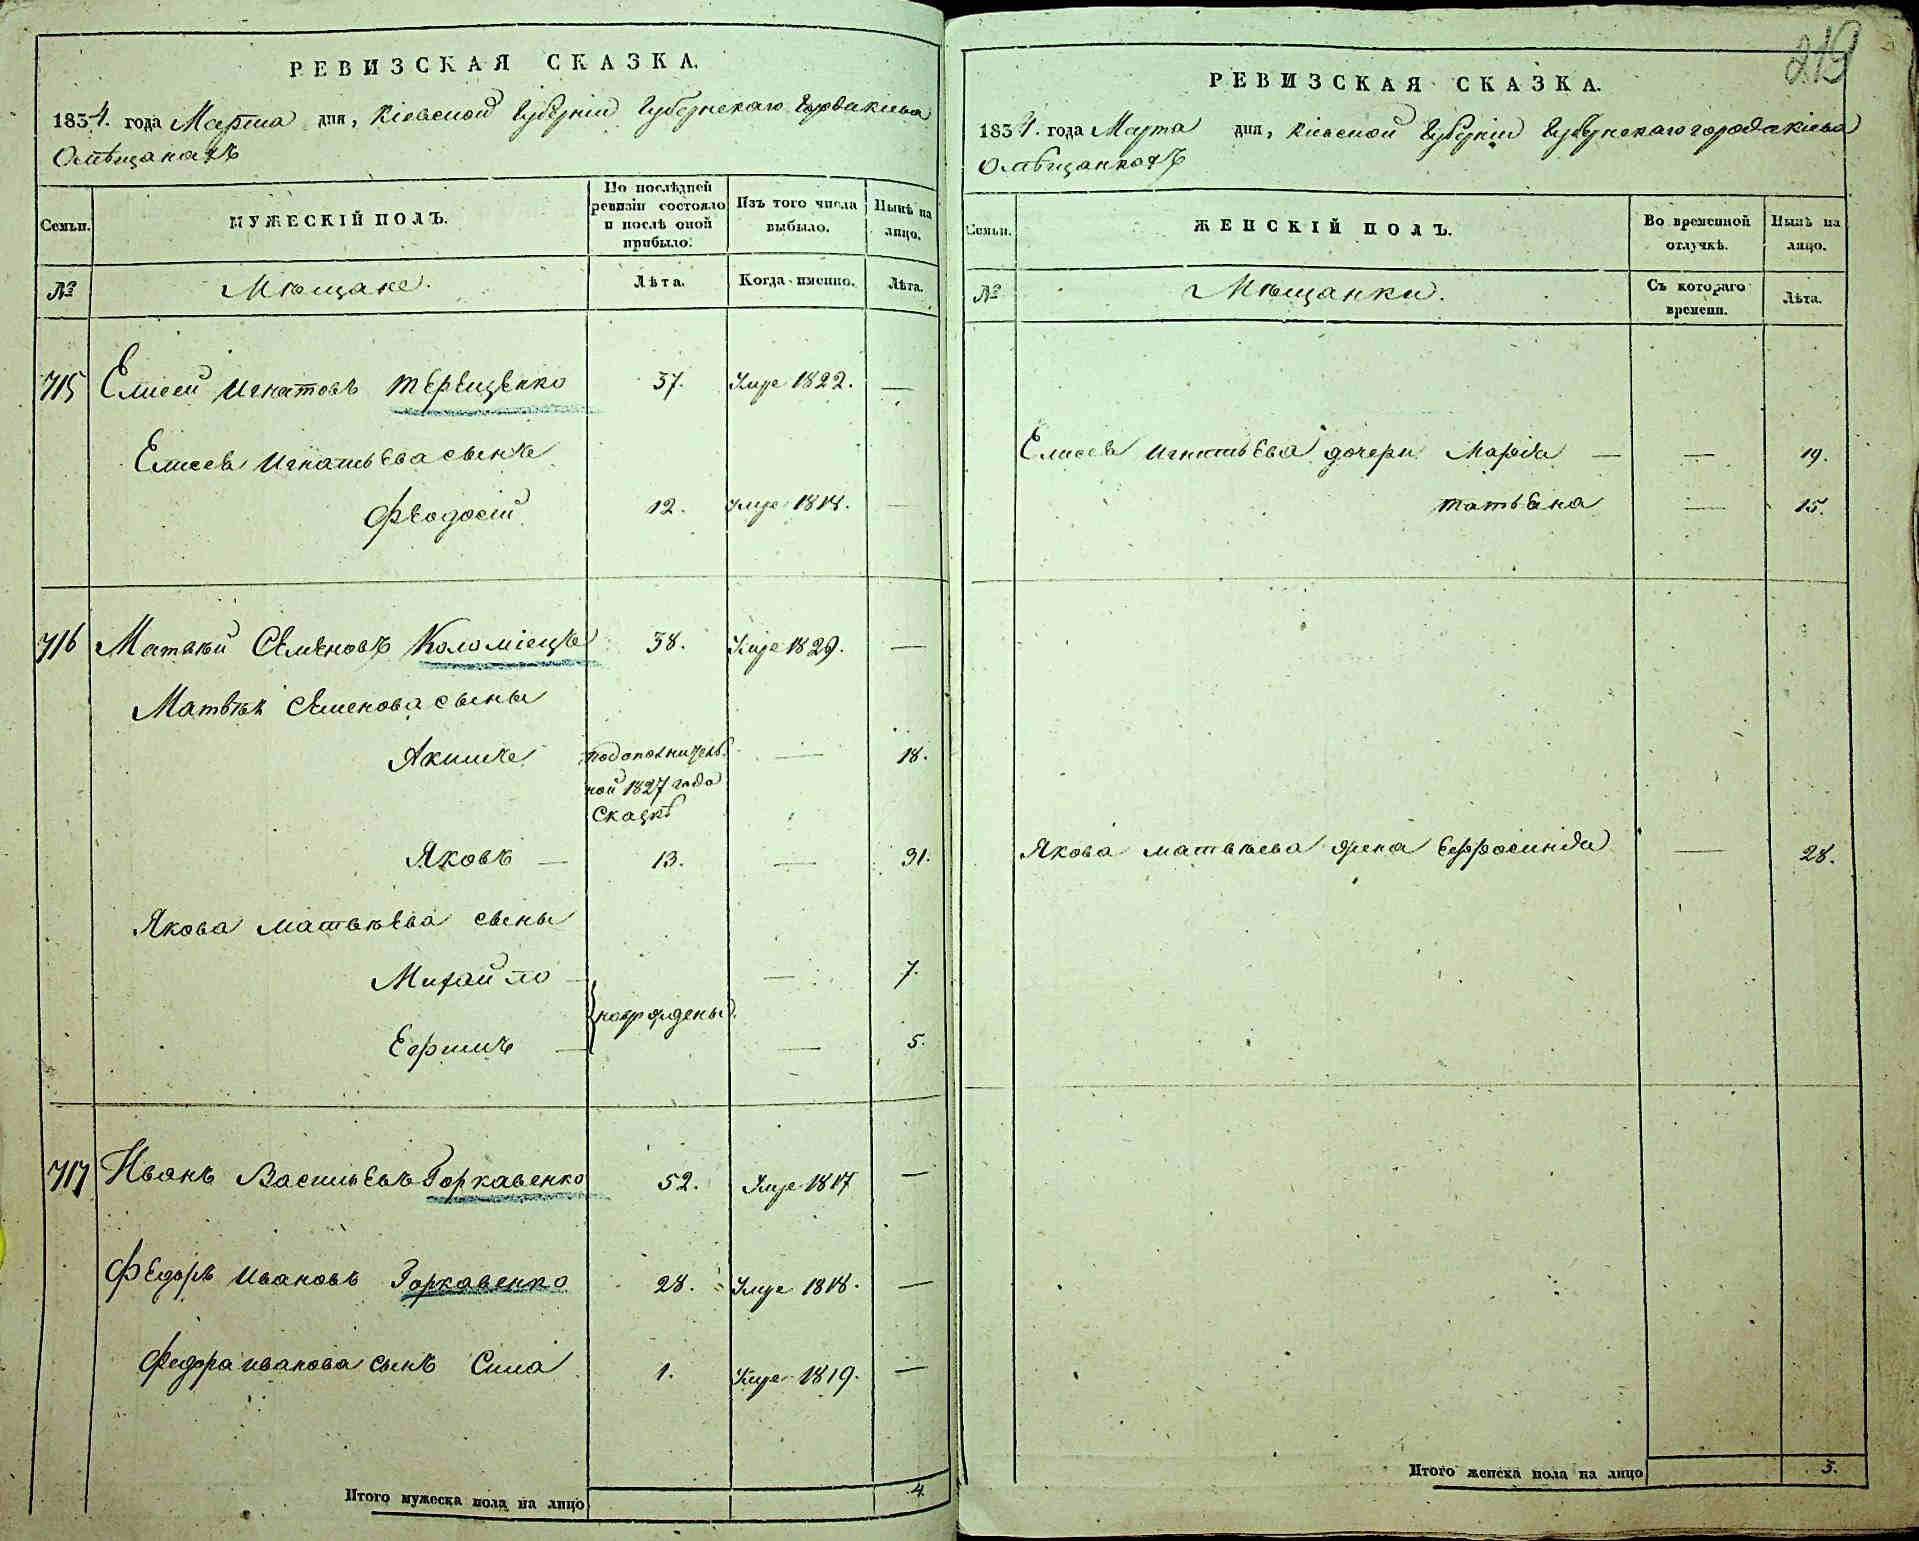 РЕВИЗСКАЯ СКАЗКА.
1834. года Марта дня, Кіевской Губерніи Губернскаго города Кіева
О мѣщанахъ
Семьи. МУЖЕСКІЙ ПОЛЪ. По послѣдней ревизіи состояло и послѣ оной прибыло. Изъ того числа выбыло. Нынѣ на лицо.
№ Мѣщане. Лѣта. Когда именно. Лѣта.
715 Елисей Игнатовъ Терещенко 37. Умре 1822. —
Елисея Игнатьева сынъ
Феодосій 12. Умре 1818. —
716 Матвѣй Семеновъ Коломіецъ 38. Умре 1829. —
Матвѣя Семенова сыны
Акимъ по дополнитель — 18.
ной 1827 года
Сказкѣ
Яковъ — 13. — 31.
Якова Матвѣева сыны
Михайло — — 7.
новорождены.
Ефимъ — — 5.
717 Иванъ Васильевъ Горкавенко 52. Умре 1817 —
Федоръ Ивановъ Горкавенко 28. Умре 1818. —
Федора Иванова сынъ Сила 1. Умре 1819. —
Итого мужеска пола на лицо 4.
219
РЕВИЗСКАЯ СКАЗКА.
1834. года Марта дня, Кіевской Губерніи Губернскаго города Кіева
О мѣщанкахъ
Семьи. ЖЕНСКІЙ ПОЛЪ. Во временной отлучкѣ. Нынѣ на лицо.
№ Мѣщанки. Съ котораго времени. Лѣта.
Елисея Игнатьева дочери Марія — — 19.
Татьяна — 15.
Якова Матвѣева жена Ефросинія — 28.
Итого женска пола на лицо 3.